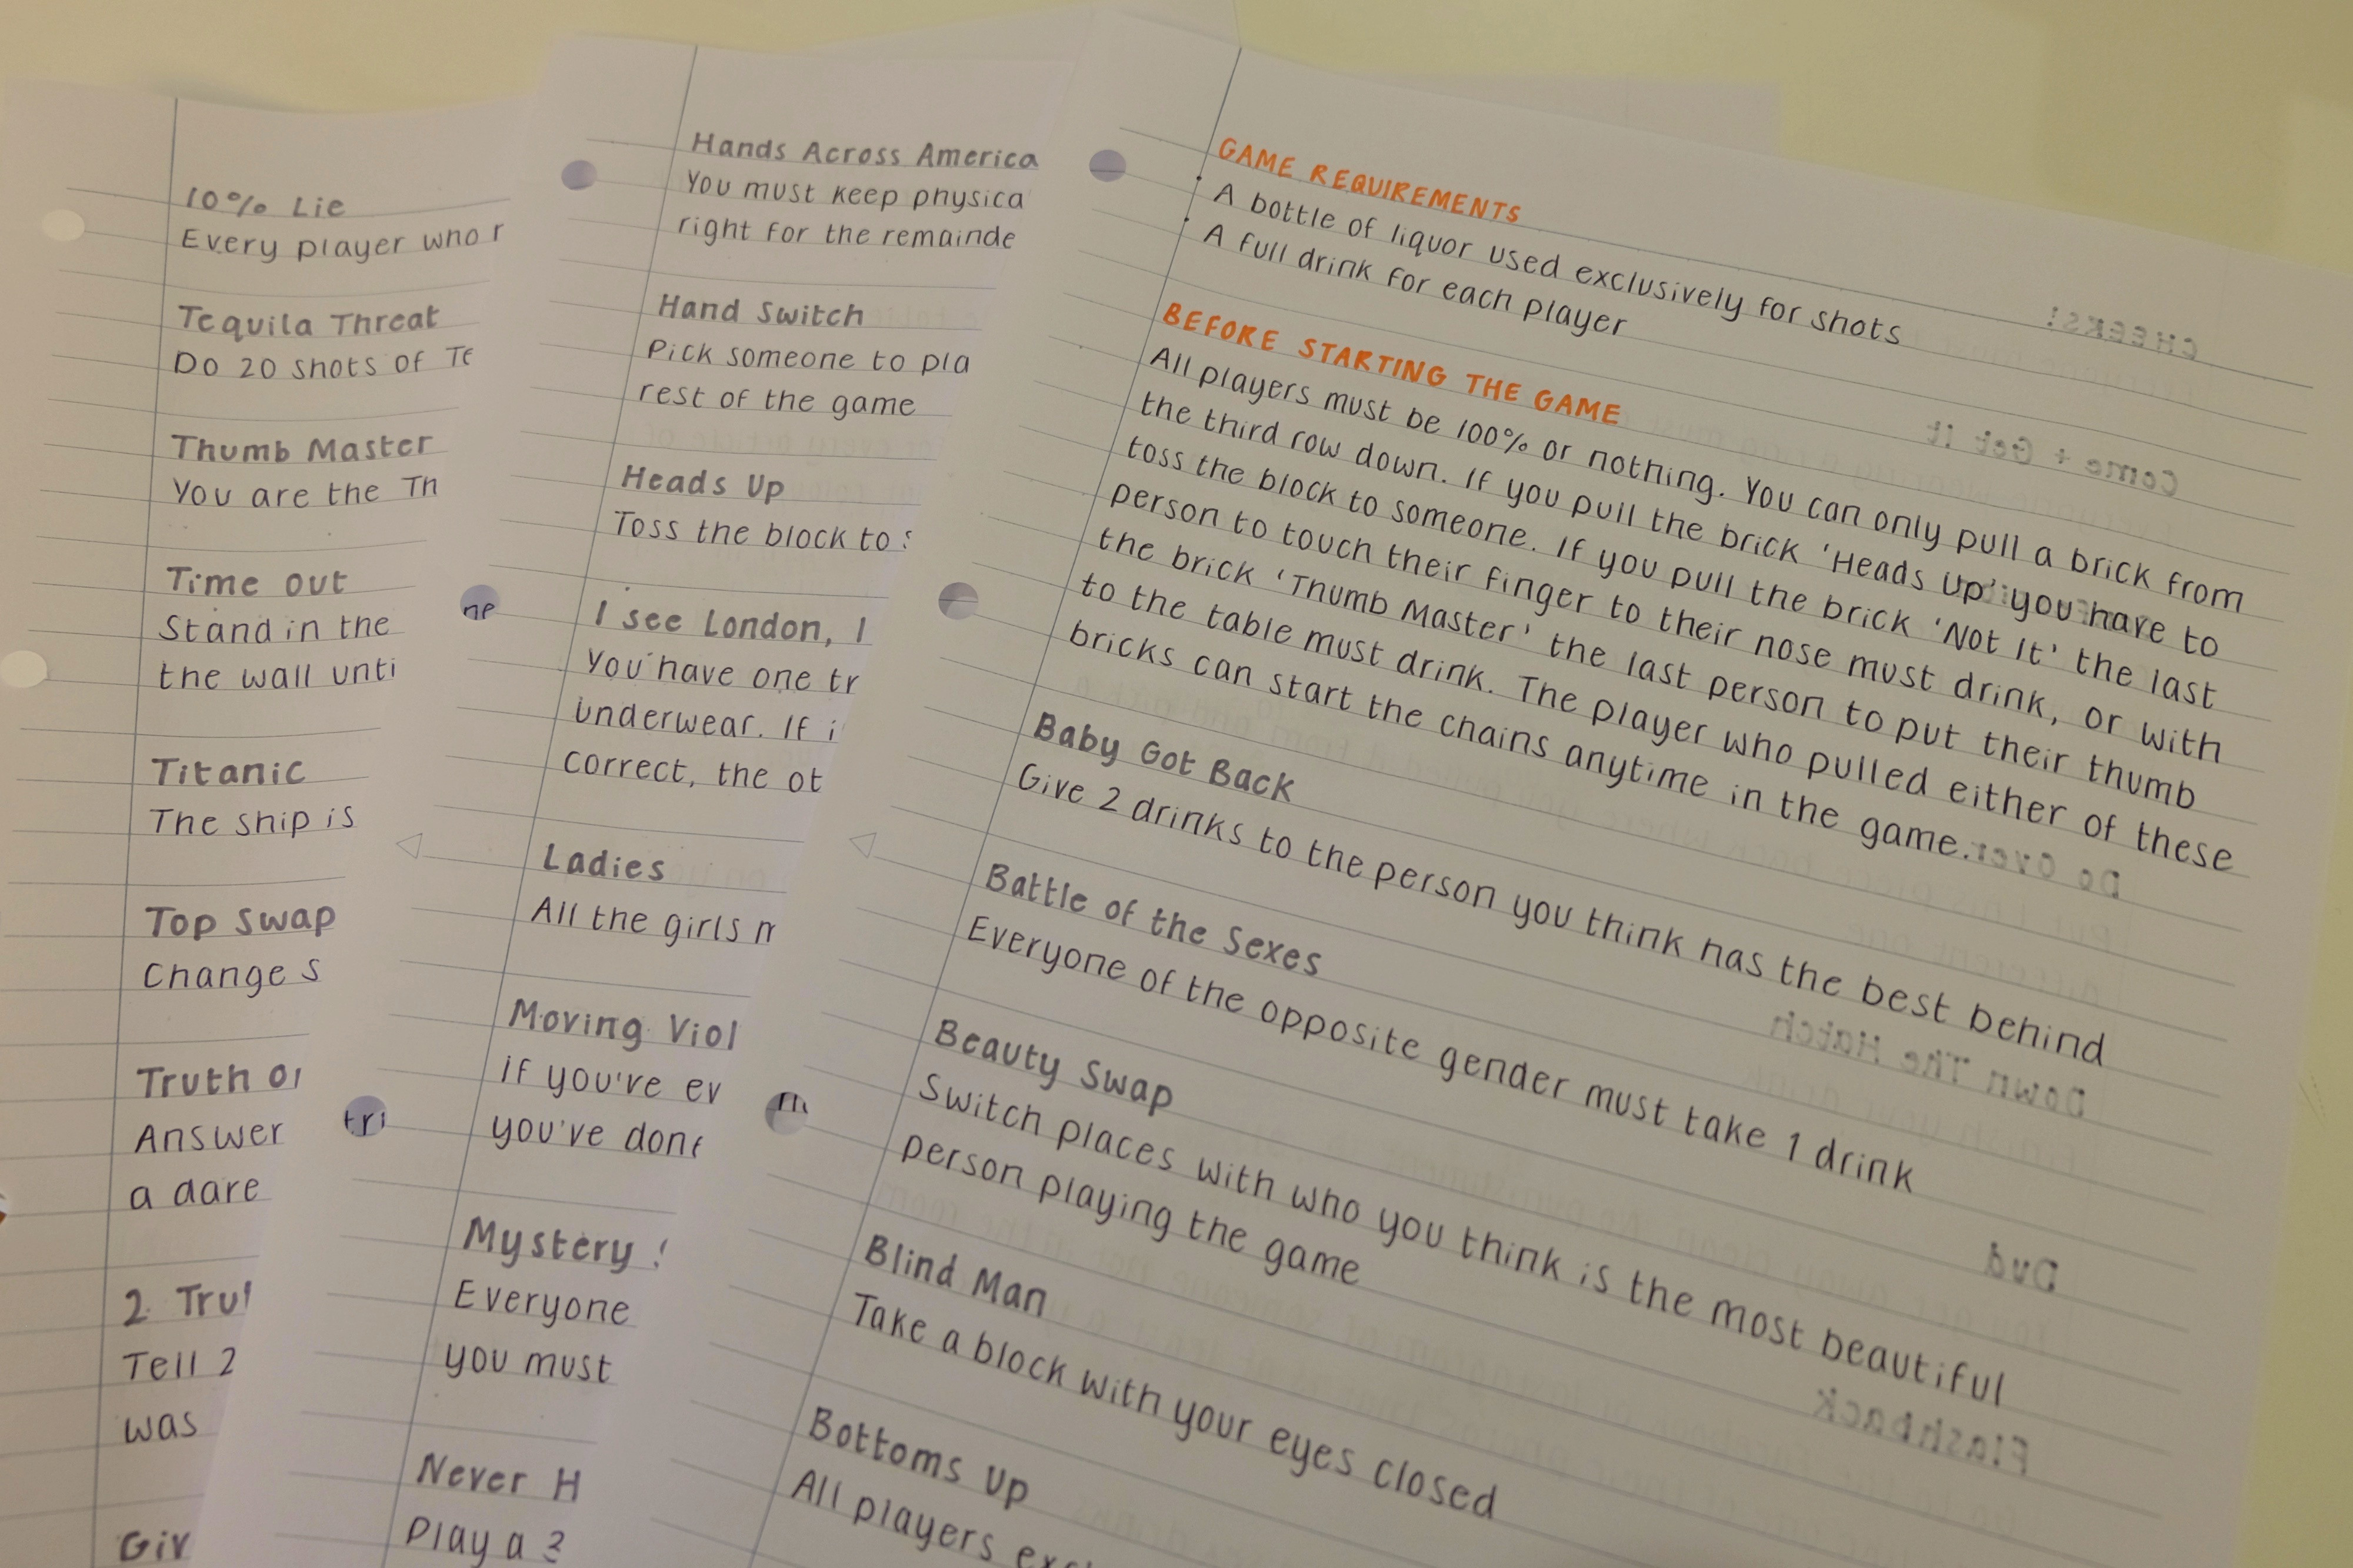 10% Lie
Every player who
Tequila Threat
Do 20 shots of
Thumb Master
You are the
Time Out
Stand in the
the wall
Titanic
The ship is
Top Swap
Change
Truth
Answer
a dare
2
Tell 2
was
Hands Across America
You must keep
right for the
Hand Switch
Pick someone to
rest of the game
Heads Up
Toss the block to
I see London, I
You have one
underwear. If
correct, the
Ladies
All the girls
Moving
If you've
you've
Mystery
Everyone
you must
Never
Play a 3
GAME REQUIREMENTS
• A bottle of liquor used exclusively for shots
• A full drink for each player
BEFORE STARTING THE GAME
All players must be 100% or nothing. You can only pull a brick from
the third row down. If you pull the brick 'Heads Up' you have to
toss the block to someone. If you pull the brick 'Not It' the last
person to touch their finger to their nose must drink, or with
the brick 'Thumb Master' the last person to put their thumb
to the table must drink. The player who pulled either of these
bricks can start the chains anytime in the game.
Baby Got Back
Give 2 drinks to the person you think has the best behind
Battle of the Sexes
Everyone of the opposite gender must take 1 drink
Beauty Swap
Switch places with who you think is the most beautiful
person playing the game
Blind Man
Take a block with your eyes closed
Bottoms Up
All players
CHEEKS!
Come + Get It
Do Over
Down The Hatch
Dvd
Flashback